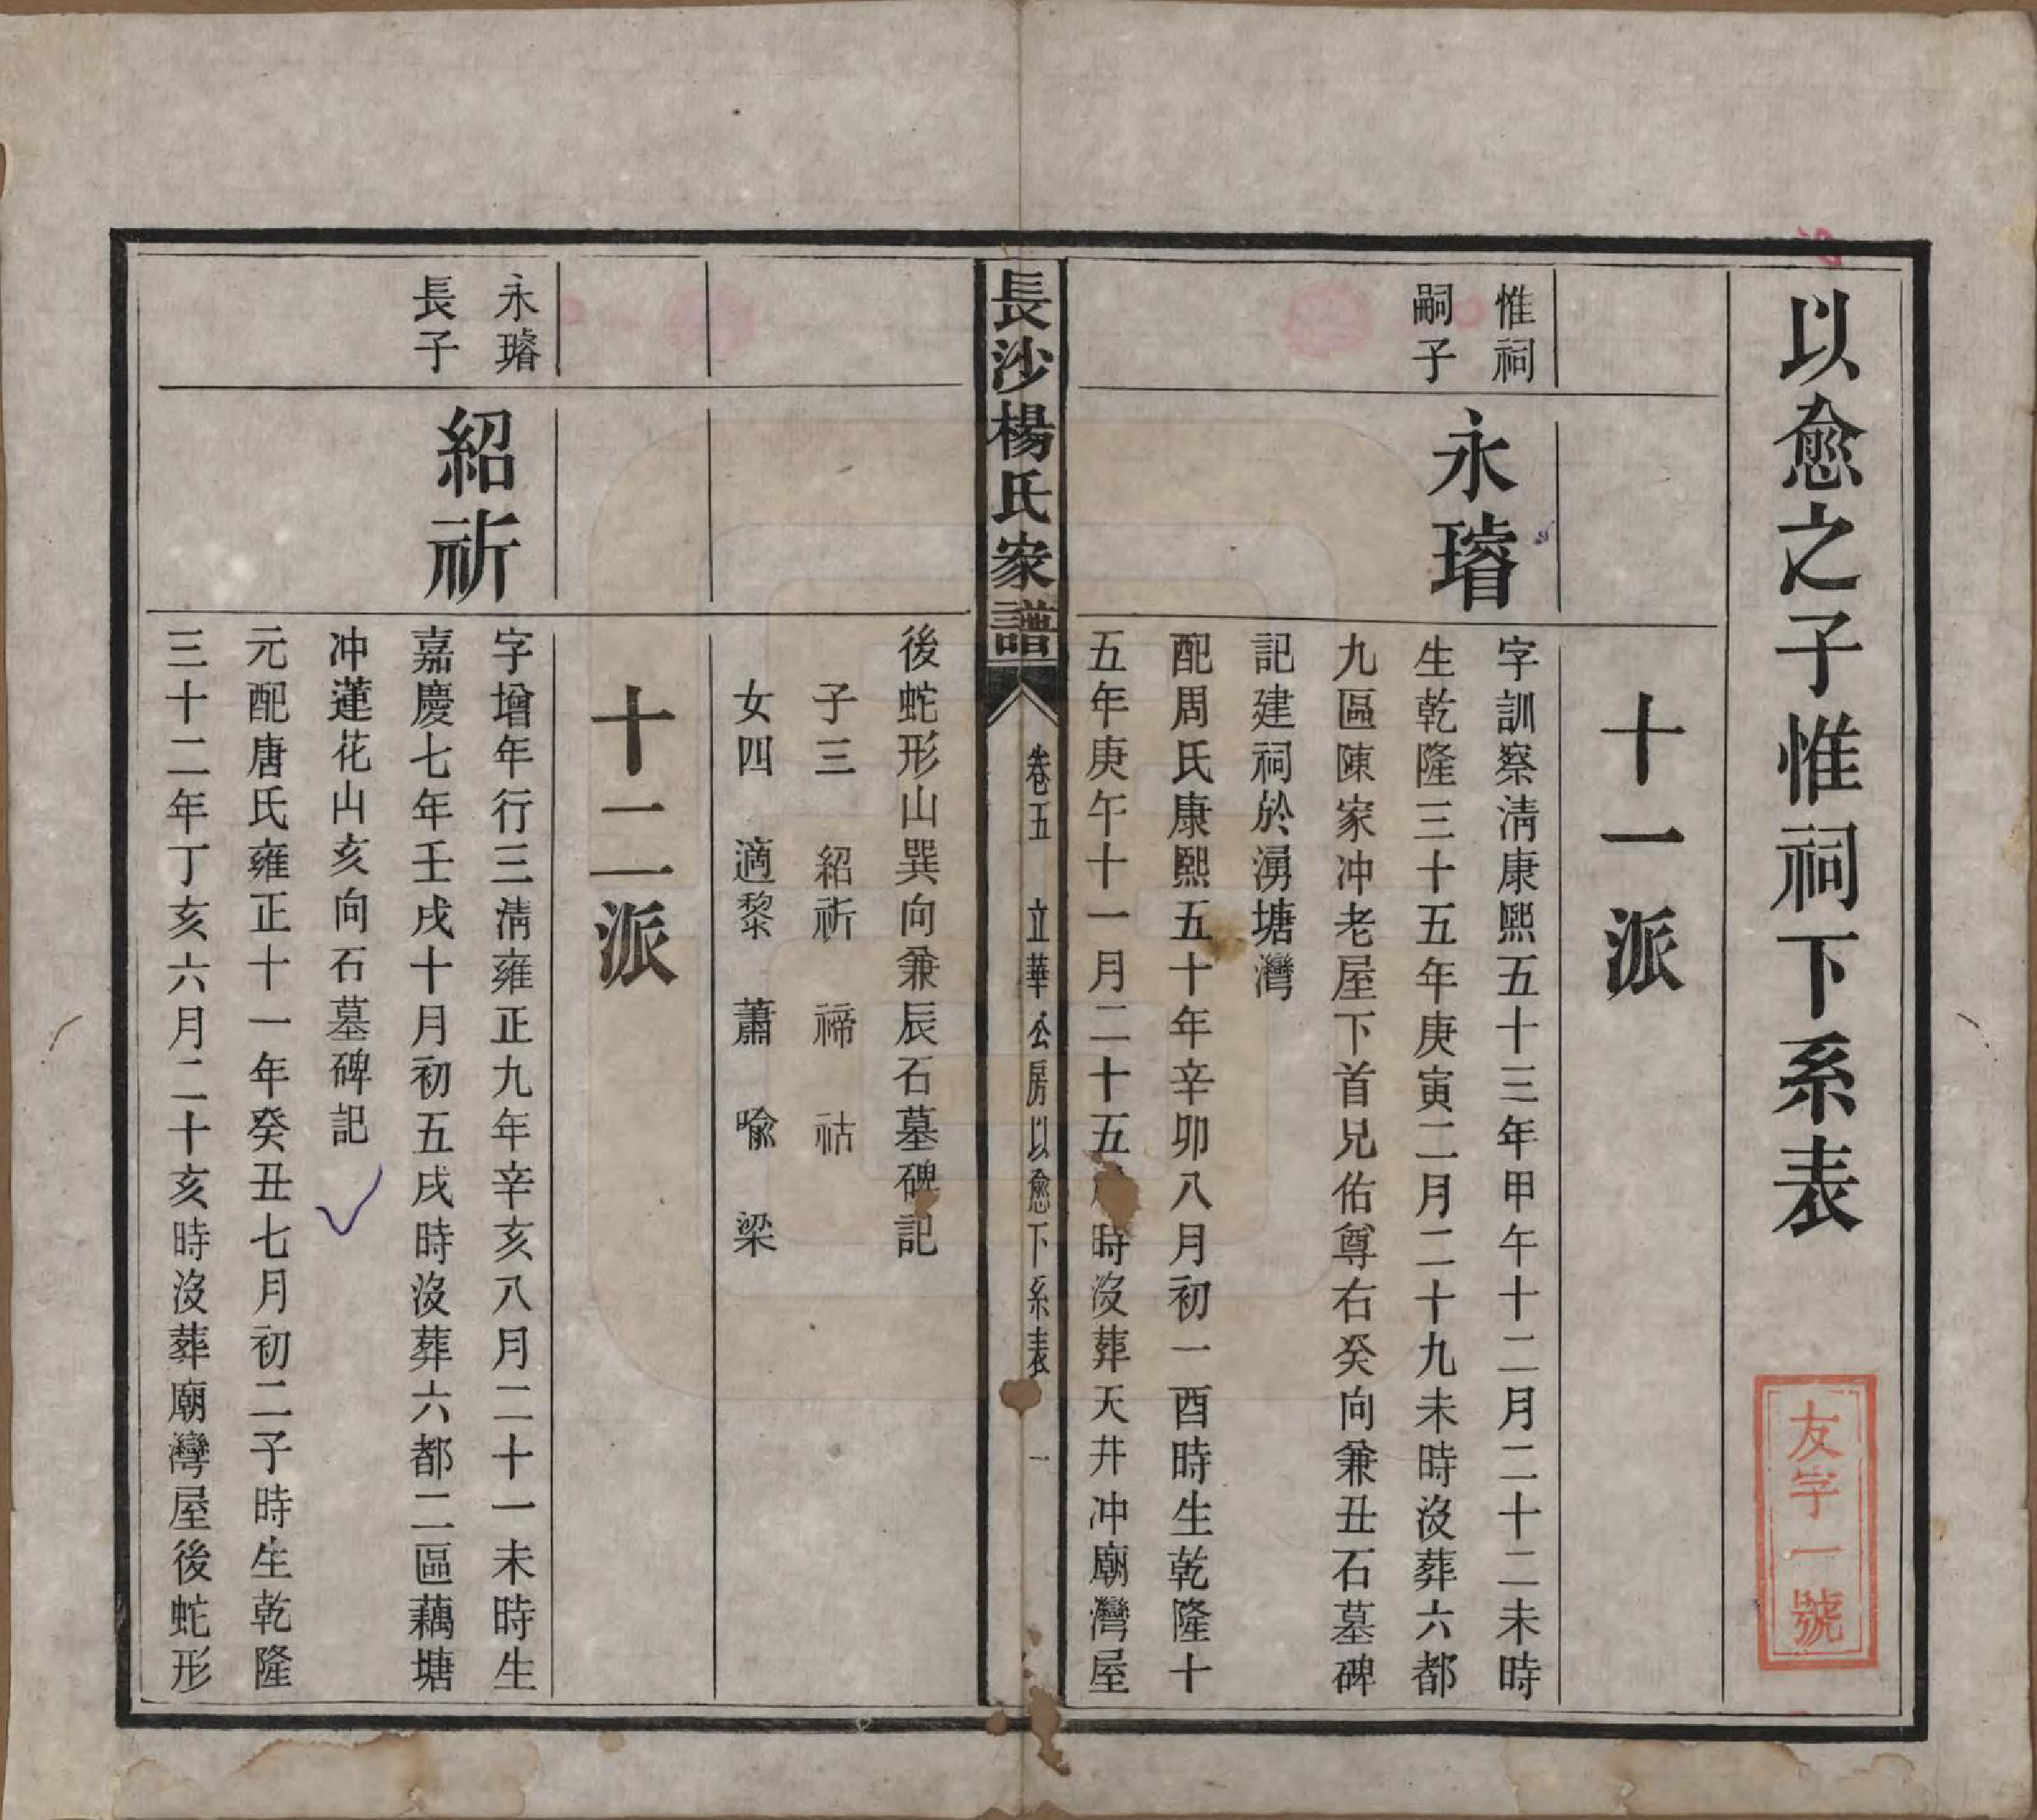 以愈之子惟祠下系表
友字一號
十一派
惟祠
嗣子
永璿
字訓察淸康熙五十三年甲午十二月二十二未時
生乾隆三十五年庚寅二月二十九未時沒葬六都
九區陳家冲老屋下首兄佑尊右癸向兼丑石墓碑
記建祠於湧塘灣
配周氏康熙五十年辛卯八月初一酉時生乾隆十
五年庚午十一月二十五時沒葬天井冲廟灣屋
長沙楊氏家譜
卷五 立華公房以愈下系表 一
後蛇形山巽向兼辰石墓碑記
子三 紹祈 禘 祜
女四 適黎 蕭 喩 梁
十二派
永璿
長子
紹祈
字增年行三淸雍正九年辛亥八月二十一未時生
嘉慶七年壬戌十月初五戌時沒葬六都二區藕塘
冲蓮花山亥向石墓碑記
元配唐氏雍正十一年癸丑七月初二子時生乾隆
三十二年丁亥六月二十亥時沒葬廟灣屋後蛇形